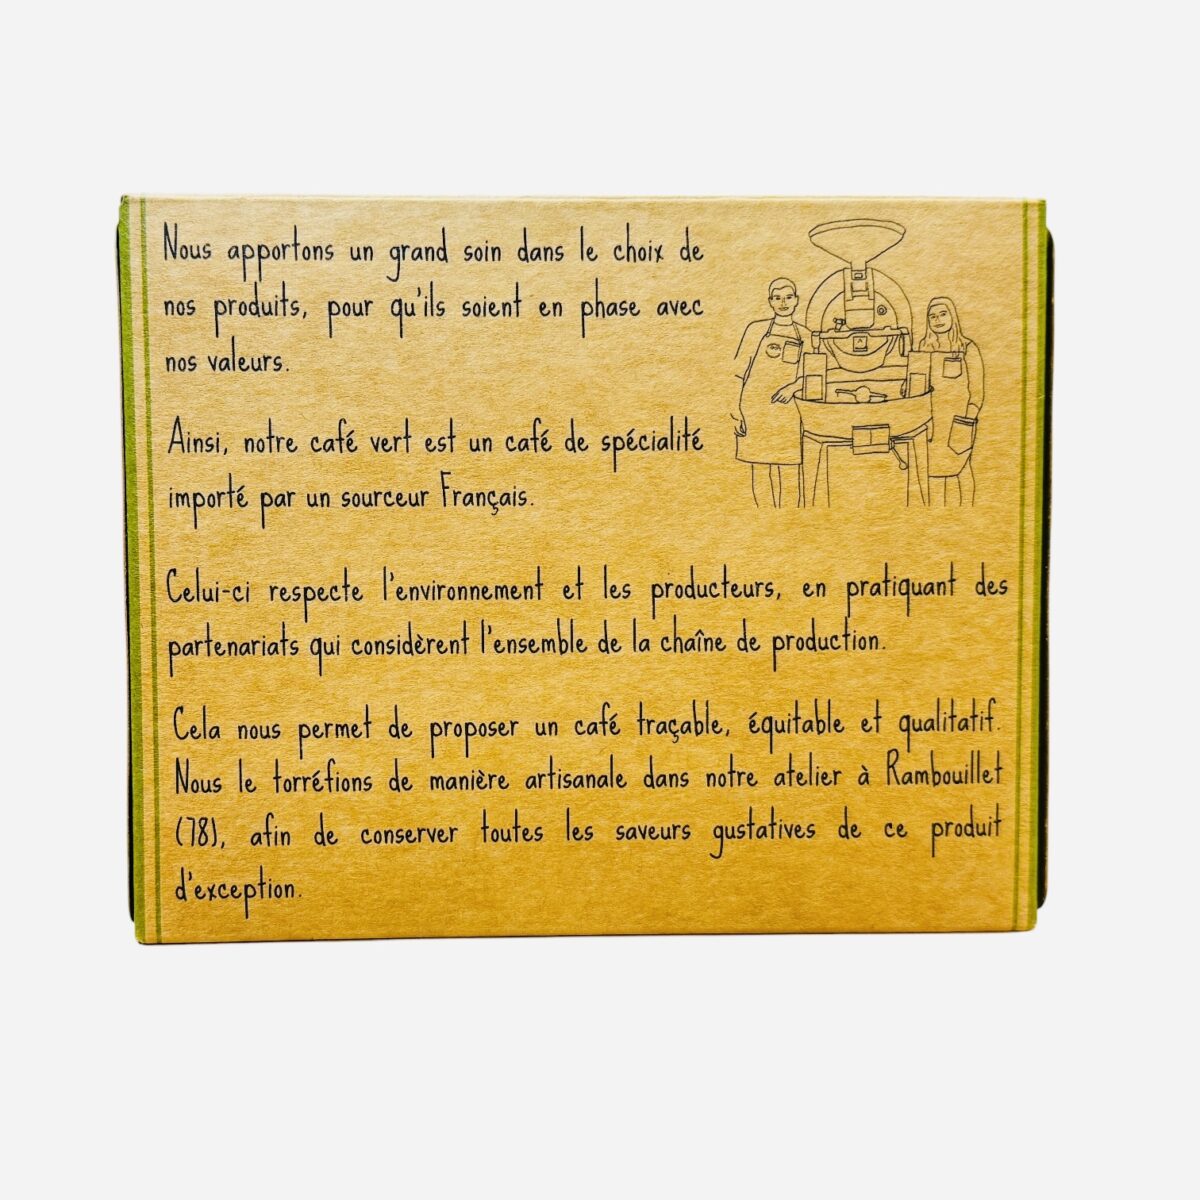 Nous apportons un grand soin dans le choix de
nos produits, pour qu'ils soient en phase avec
nos valeurs.
Ainsi, notre café vert est un café de spécialité
importé par un sourceur Français.
Celui-ci respecte l'environnement et les producteurs, en pratiquant des
partenariats qui considèrent l'ensemble de la chaîne de production.
Cela nous permet de proposer un café traçable, équitable et qualitatif.
Nous le torréfions de manière artisanale dans notre atelier à Rambouillet
(78), afin de conserver toutes les saveurs gustatives de ce produit
d'exception.